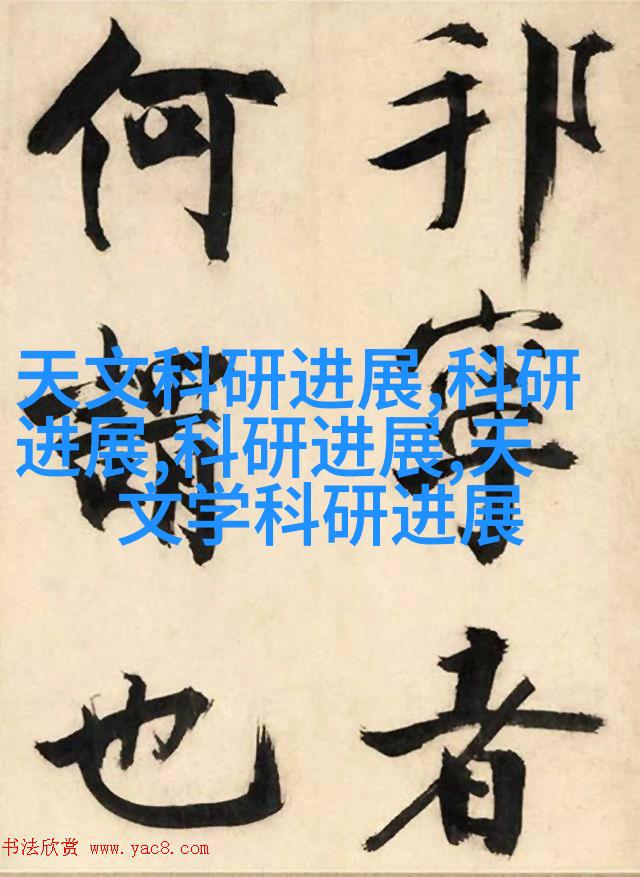 邦寧者
何謂也
天文科研进展,科研
进展,科研进展,天
文学科研进展
书法欣赏 www.yac8.com